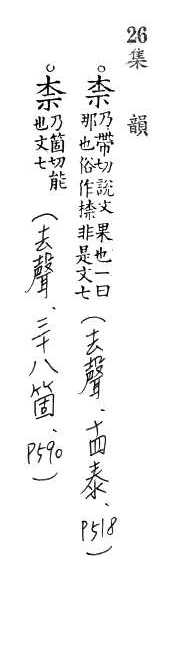 26集韻
○柰乃帶切說文果也一曰那也俗作㮈非是文七(去聲、十四泰、P518)
○柰乃箇切能也文七(去聲、三十八箇、P590)